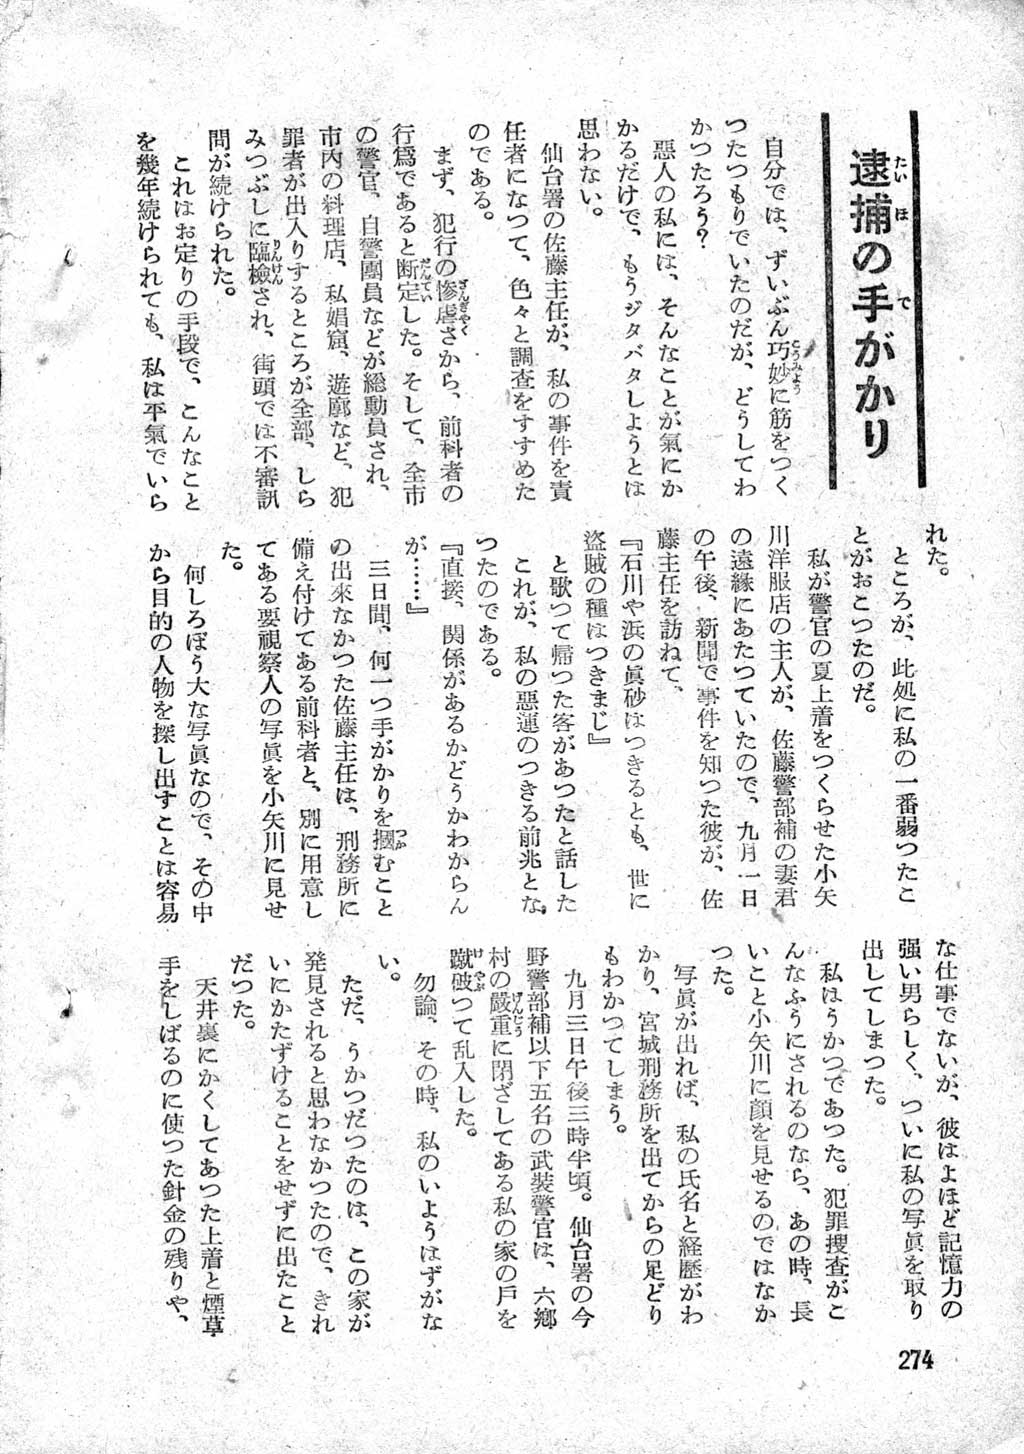 逮捕の手がかり
自分では、ずいぶん巧妙に筋をつく
つたつもりでいたのだが、どうしてわ
かつたろう?
惡人の私には、そんなことが氣にか
かるだけで、もうジタバタしようとは
思わない。
仙台署の佐藤主任が、私の事件を責
任者になつて、色々と調査をすすめた
のである。
まず、犯行の惨虐さから、前科者の
行爲であると断定した。そして、全市
の警官、自警團員などが総動員され、
市内の料理店、私娼窟、遊廓など、犯
罪者が出入りするところが全部、しら
みつぶしに臨檢され、街頭では不審訊
問が続けられた。
これはお定りの手段で、こんなこと
を幾年続けられても、私は平氣でいら
れた。
ところが、此処に私の一番弱つたこ
とがおこつたのだ。
私が警官の夏上着をつくらせた小矢
川洋服店の主人が、佐藤警部補の妻君
の遠縁にあたつていたので、九月一日
の午後、新聞で事件を知つた彼が、佐
藤主任を訪ねて、
『石川や浜の眞砂はつきるとも、世に
盗賊の種はつきまじ』
と歌つて帰つた客があつたと話した
これが、私の惡運のつきる前兆とな
つたのである。
『直接、関係があるかどうかわからん
が……』
三日間、何一つ手がかりを摑むこと
の出来なかつた佐藤主任は、刑務所に
備え付けてある前科者と、別に用意し
てある要視察人の写眞を小矢川に見せ
た。
何しろぼう大な写眞なので、その中
から目的の人物を探し出すことは容易
な仕事でないが、彼はよほど記憶力の
强い男らしく、ついに私の写眞を取り
出してしまつた。
私はうかつであつた。犯罪捜査がこ
んなふうにされるのなら、あの時、長
いこと小矢川に顔を見せるのではなか
つた。
写眞が出れば、私の氏名と経歴がわ
かり、宮城刑務所を出てからの足どり
もわかつてしまう。
九月三日午後三時半頃。仙台署の今
野警部補以下五名の武装警官は、六鄕
村の嚴重に閉ざしてある私の家の戸を
蹴破つて乱入した。
勿論、その時、私のいようはずがな
い。
ただ、うかつだつたのは、この家が
発見されると思わなかつたので、きれ
いにかたずけることをせずに出たこと
だつた。
天井裏にかくしてあつた上着と煙草
手をしばるのに使つた針金の残りや、
274